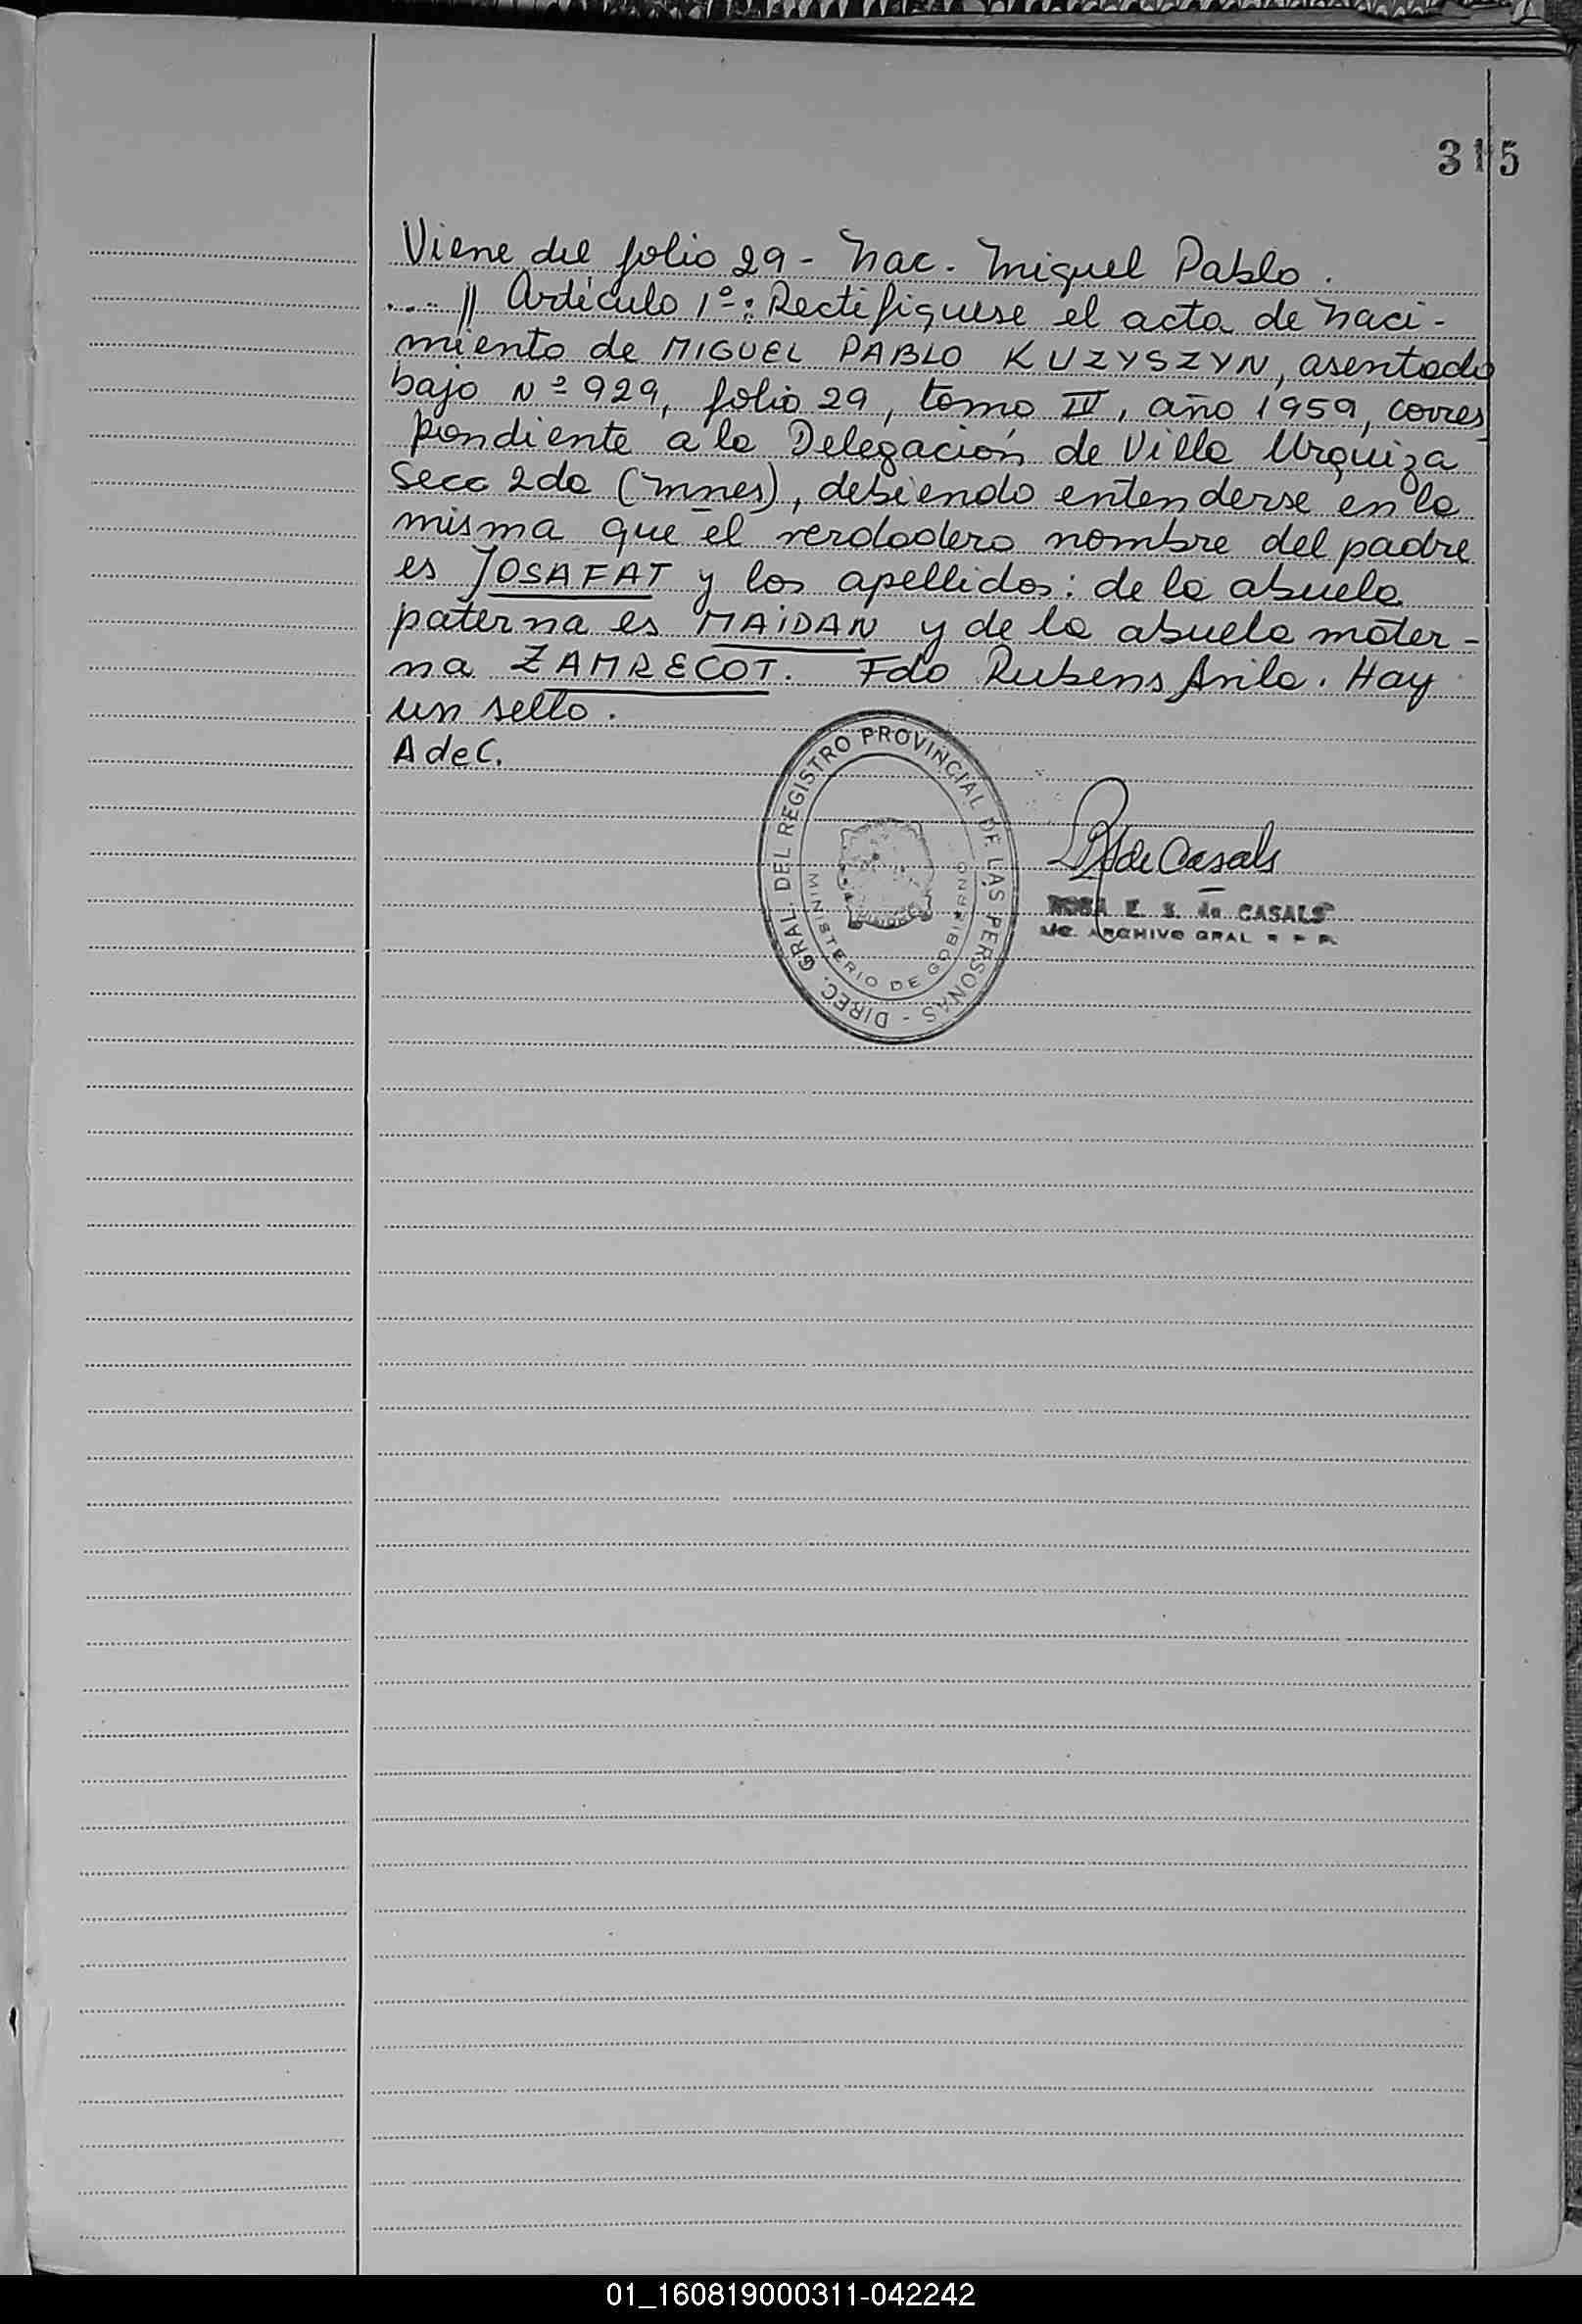 315
Viene del folio 29 - Nac. Miguel Pablo.
....// Artículo 1º: Rectifiquese el acta de naci-
miento de MIGUEL PABLO KUZYSZYN, asentado
bajo Nº 929, folio 29, tomo III, año 1959, corres
pondiente a la Delegación de Villa Urquiza
Secc 2da (Mnes), debiendo entenderse en la
misma que el verdadero nombre del padre
es JOSAFAT y los apellidos: de la abuela
paterna es MAIDAN y de la abuela mater-
na ZAMRECOT. Fdo Rubens Avila. Hay
un sello.
A de C.
DIREC. GRAL. DEL REGISTRO PROVINCIAL DE LAS PERSONAS -
MINISTERIO DE GOBIERNO
de Casals
ROSA E. S. de CASALS
ARCHIVO GRAL R P P.
01_160819000311-042242